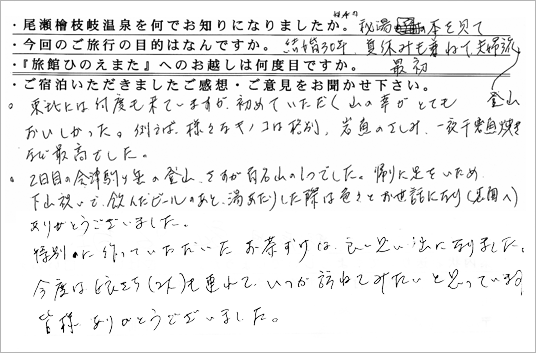 ・尾瀬檜枝岐温泉を何でお知りになりましたか。秘湯 本を見て
・今回のご旅行の目的はなんですか。結婚30年、夏休みも兼ねて夫婦旅
・『旅館ひのえまた』へのお越しは何度目ですか。最初
・ご宿泊いただきましたご感想・ご意見をお聞かせ下さい。 登山
○ 東北には何度も来ていますが、初めていただく山の幸がとても
おいしかった。例えば、様々なキノコは格別、岩魚のさしみ、一夜干 焼き
など最高でした。
○ 2日目の会津駒ヶ岳の登山、さすが百名山の1つでした。帰りに足をいため、
下山 いで、飲んだビールのあと、湯あたりした際は色々とお世話になり
ありがとうございました。
特別に作っていただいたお茶づけは、良い思い出になりました。
今度は娘たち(2人)も連れて、いつか訪ねてみたいと思っています。
皆様ありがとうございました。